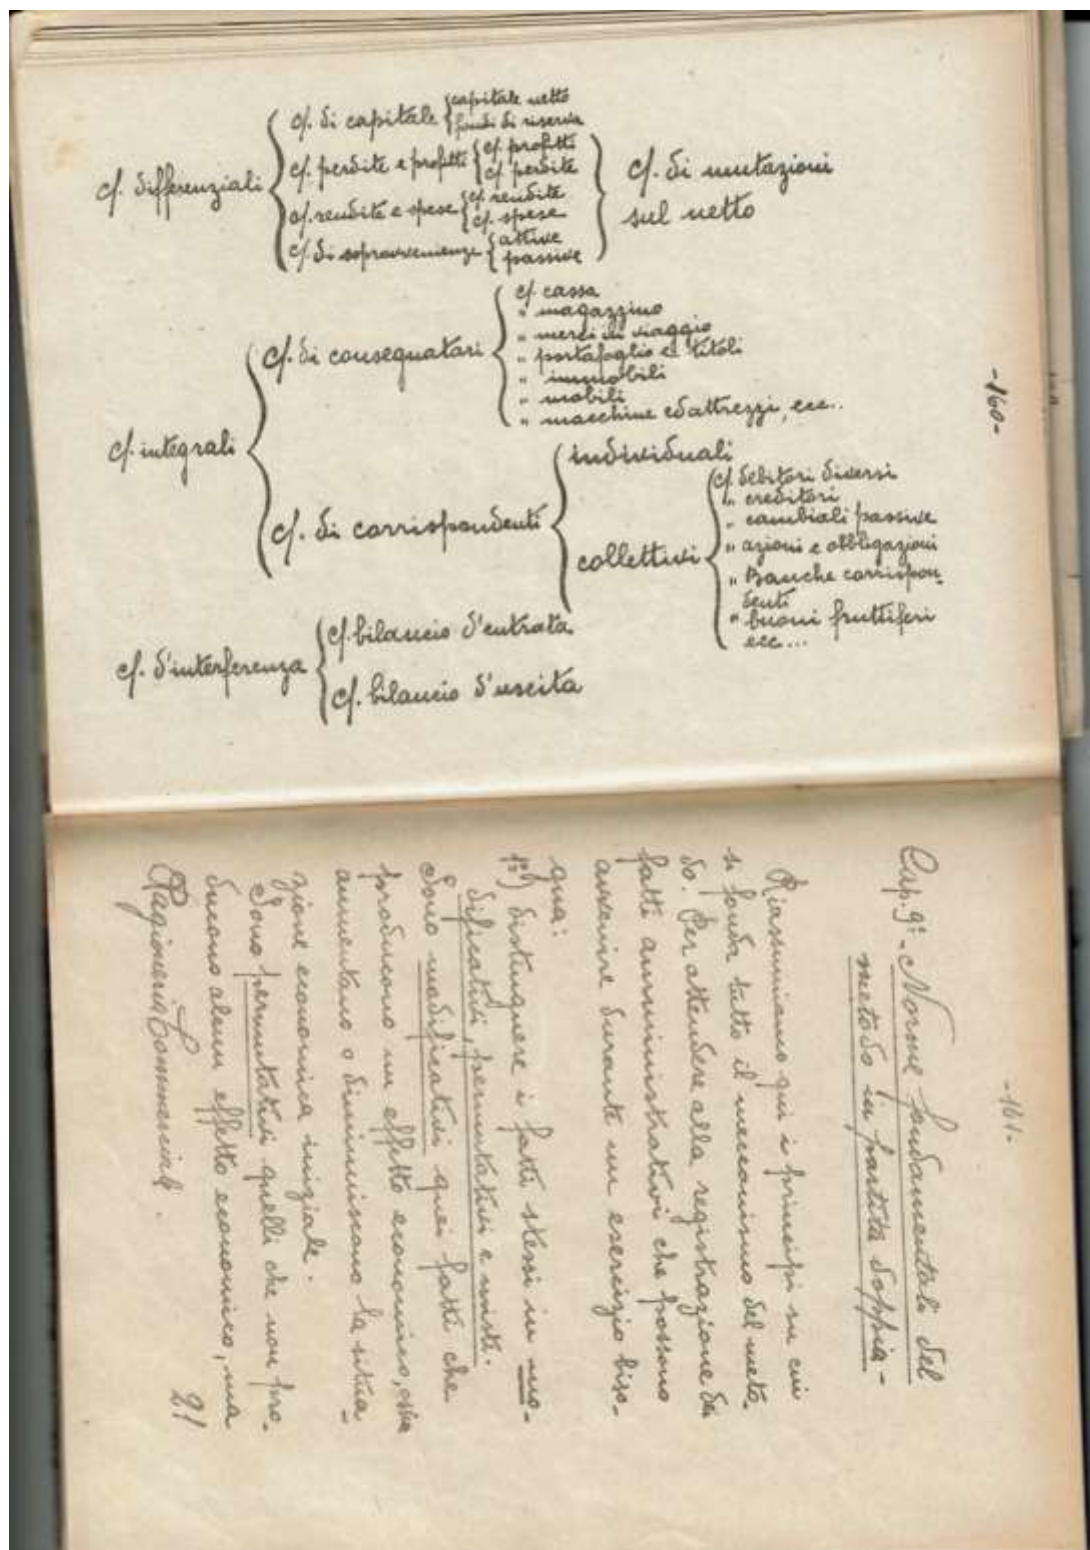 -160-
c/. differenziali
c/. di capitale
capitale netto
fondi di riserva
c/. perdite e profitti
c/. profitti
c/. perdite
c/. rendite e spese
c/. rendite
c/. spese
c/. di sopravvenienze
attive
passive
c/. di mutazioni
sul netto
c/. integrali
c/. di consegnatari
c/. cassa
" magazzino
" merci in viaggio
" portafoglio e titoli
" immobili
" mobili
" macchine ed attrezzi, ecc..
c/. di corrispondenti
individuali
collettivi
c/. debitori diversi
" creditori
" cambiali passive
" azioni e obbligazioni
" Banche corrispon-
denti
" buoni fruttiferi
ecc...
c/. d'interferenza
c/. bilancio d'entrata
c/. bilancio d'uscita
-161-
Cap. 9º - Norme fondamentali del
metodo in partita doppia -
Riassumiamo qui i principi su cui
si fonda tutto il meccanismo del meto-
do. Per attendere alla registrazione dei
fatti amministrativi che possono
avvenire durante un esercizio biso-
gna:
1º) distinguere i fatti stessi in mo-
dificativi, permutativi e misti.
Sono modificativi quei fatti che
producono un effetto economico, ossia
aumentano o diminuiscono la situa-
zione economica iniziale.
Sono permutativi quelli che non pro-
ducono alcun effetto economico, ma
Ragioneria Commerciale. 21